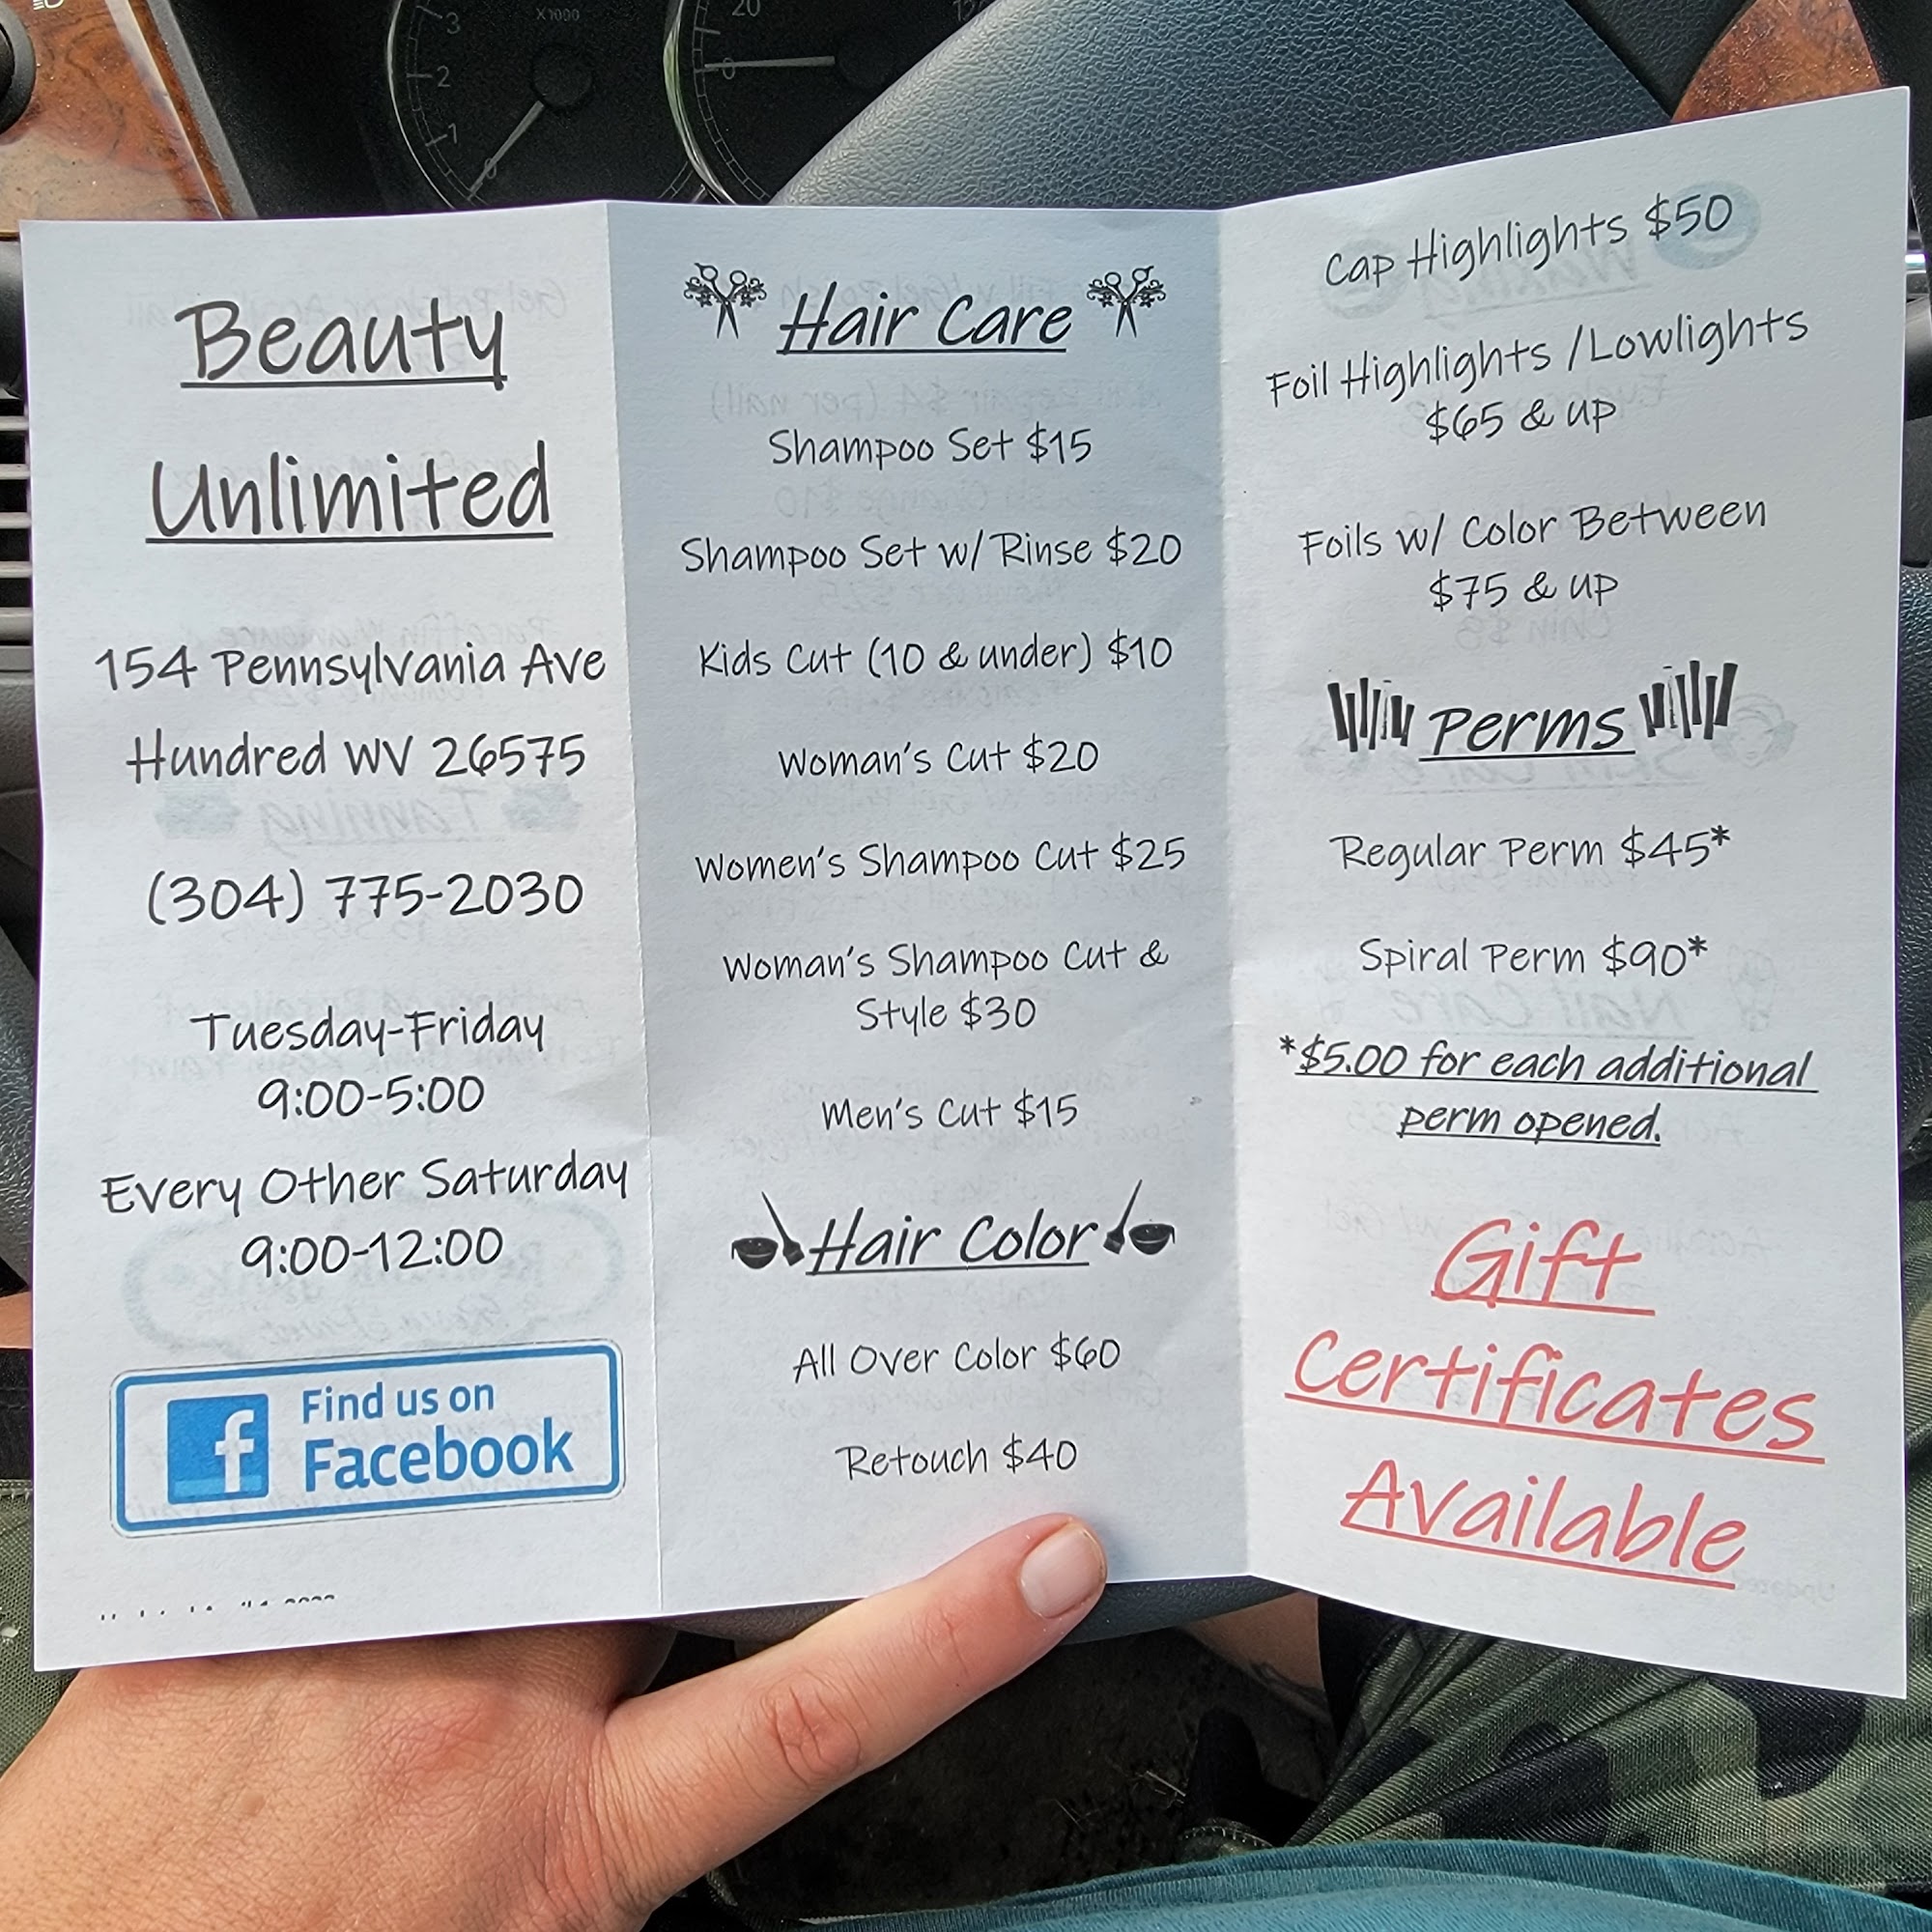 Beauty
Unlimited
154 Pennsylvania Ave
Hundred WV 26575
(304) 775-2030
Tuesday-Friday
9:00-5:00
Every Other Saturday
9:00-12:00
Find us on
Facebook
Hair Care
Shampoo Set $15
Shampoo Set w/ Rinse $20
Kids Cut (10 & under) $10
Woman's Cut $20
Women's Shampoo Cut $25
Woman's Shampoo Cut &
Style $30
Men's Cut $15
Hair Color
All Over Color $60
Retouch $40
Cap Highlights $50
Foil Highlights /Lowlights
$65 & up
Foils w/ Color Between
$75 & up
Perms
Regular Perm $45*
Spiral Perm $90*
*$5.00 for each additional
perm opened.
Gift
Certificates
Available
3
2
1
0
X1000
20
0